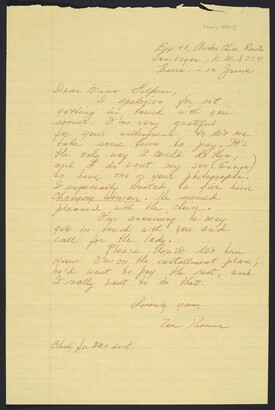 Box 48,
Las Vegas, N.M. 877
Tues - 10 June
Dear Miss Gilpin,
I apologize for not
getting in touch with you
sooner. I'm very grateful
for your willingness to let me
take some time to pay. It's
the only way I could do this,
and I do want my son
to have one of your photographs.
I especially wanted to give him
Changing Woman. He seemed
pleased with the choice.
I'm assuming he may
get in touch with you and
call for the lady.
Please don't let him
know I'm on the installment plan;
he'd want to pay the rest, and
I really want to do that.
Sincerely yours,
Check for end